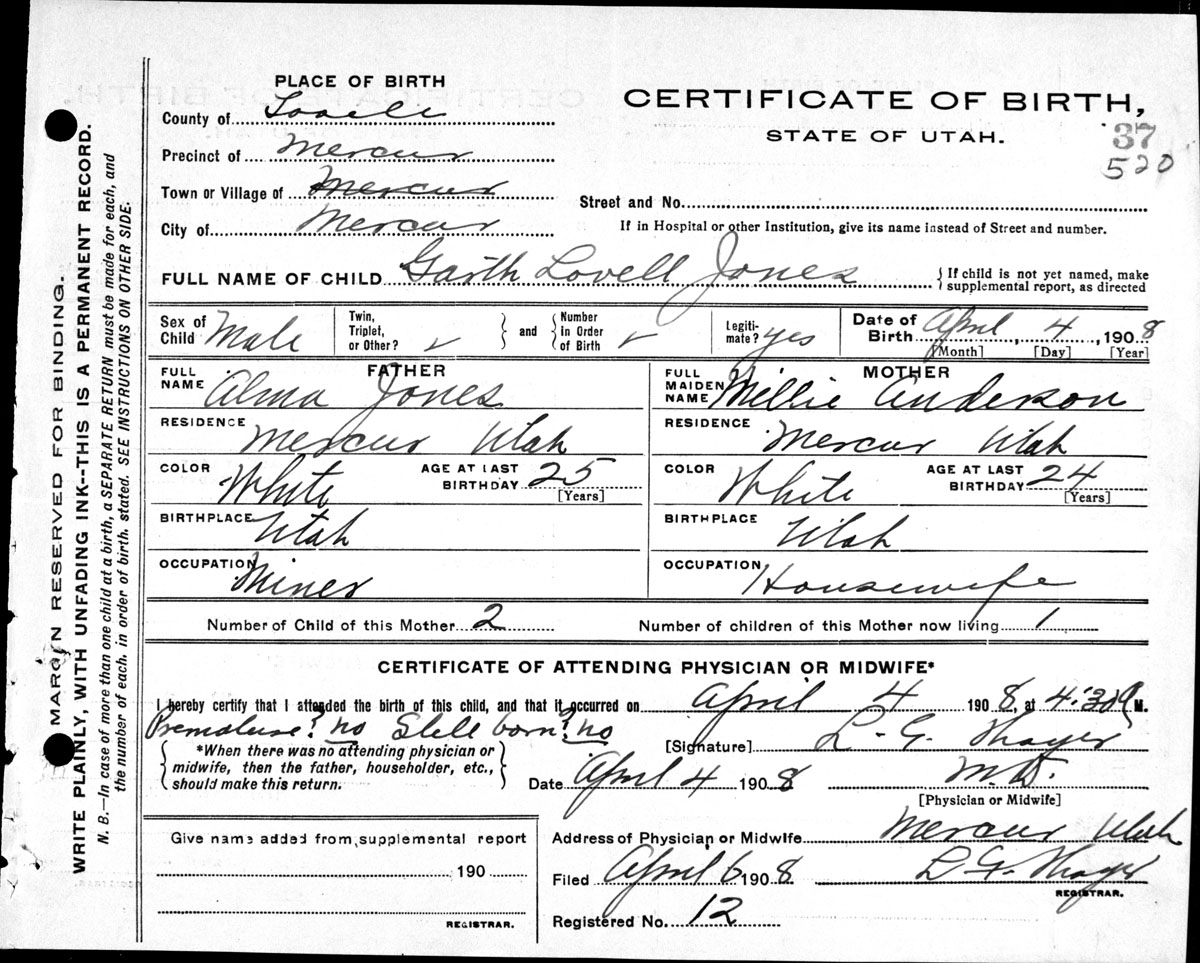 PLACE OF BIRTH
County of Tooele
Precinct of Mercur
Town or Village of Mercur
City of Mercur
CERTIFICATE OF BIRTH,
STATE OF UTAH.
37
520
Street and No.
If in Hospital or other Institution, give its name instead of Street and number.
FULL NAME OF CHILD Garth Lovell Jones
If child is not yet named, make
supplemental report, as directed
Sex of Child Male
Twin, Triplet, or Other? and Number in Order of Birth
Legitimate? yes
Date of Birth April 4, 1908
[Month] [Day] [Year]
FATHER
FULL NAME Alma Jones
RESIDENCE Mercur Utah
COLOR White AGE AT LAST BIRTHDAY 25
[Years]
BIRTHPLACE Utah
OCCUPATION Miner
MOTHER
FULL MAIDEN NAME Millie Anderson
RESIDENCE Mercur Utah
COLOR White AGE AT LAST BIRTHDAY 24
[Years]
BIRTHPLACE Utah
OCCUPATION Housewife
Number of Child of this Mother 2 Number of children of this Mother now living 1
CERTIFICATE OF ATTENDING PHYSICIAN OR MIDWIFE*
I hereby certify that I attended the birth of this child, and that it occurred on April 4 1908, at 4:30 M.
Premature? no Still born? no
*When there was no attending physician or
midwife, then the father, householder, etc.,
should make this return.
[Signature] L. G. Thayer
Date April 4 1908 M.D.
[Physician or Midwife]
Give name added from supplemental report
190
REGISTRAR.
Address of Physician or Midwife Mercur Utah
Filed April 6 1908 L G. Thayer
REGISTRAR.
Registered No. 12
MARGIN RESERVED FOR BINDING.
WRITE PLAINLY, WITH UNFADING INK--THIS IS A PERMANENT RECORD.
N. B.—In case of more than one child at a birth, a SEPARATE RETURN must be made for each, and
the number of each, in order of birth, stated. SEE INSTRUCTIONS ON OTHER SIDE.